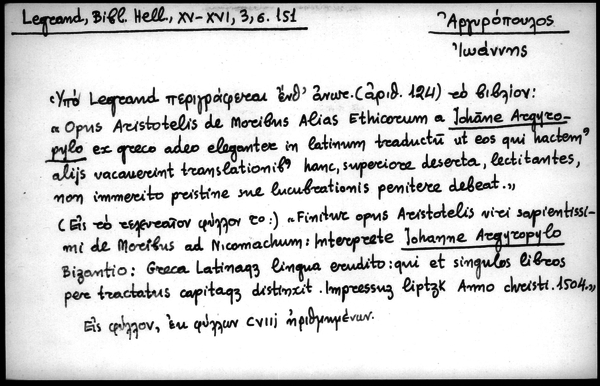 Legrand, Bibl. Hell., XV-XVI, 3, σ. 151
Ἀργυρόπουλος
Ἰωάννης
Ὑπό Legrand περιγράφεται ἔνθ' ἀνωτ. (ἀριθ. 124) τό βιβλίον:
« Opus Aristotelis de Moribus Alias Ethicorum a Johāne Argyro-
pylo ex greco adeo eleganter in latinum traductū ut eos qui hacten⁹
alijs vacaverint translationib⁹ hanc, superiore deserta, lectitantes,
non immerito pristine sue lucubrationis penitere debeat.»
(Εἰς τό τελευταῖον φύλλον το:) «Finitur opus Aristotelis viri sapientissi-
mi de Moribus ad Nicomachum: Interprete Johanne Argyropylo
Bizantio: Greca Latinaqꝫ lingua erudito: qui et singulos libros
per tractatus capitaqꝫ distinxit. Impressuꝫ liptzk Anno christi. 1504.»
Εἰς φύλλον, ἐκ φύλλων CVIIj ἠριθμημένων.